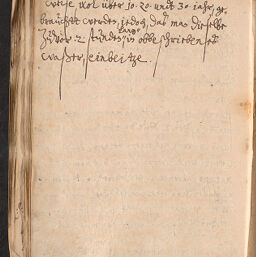 weise wol über 10. 20. undt 30. jahr, ge,
braucht werden, jedoch, das man dieselbe
Zuvor 2 stundt lang in obbeschrieben
waßer, einbeitze.